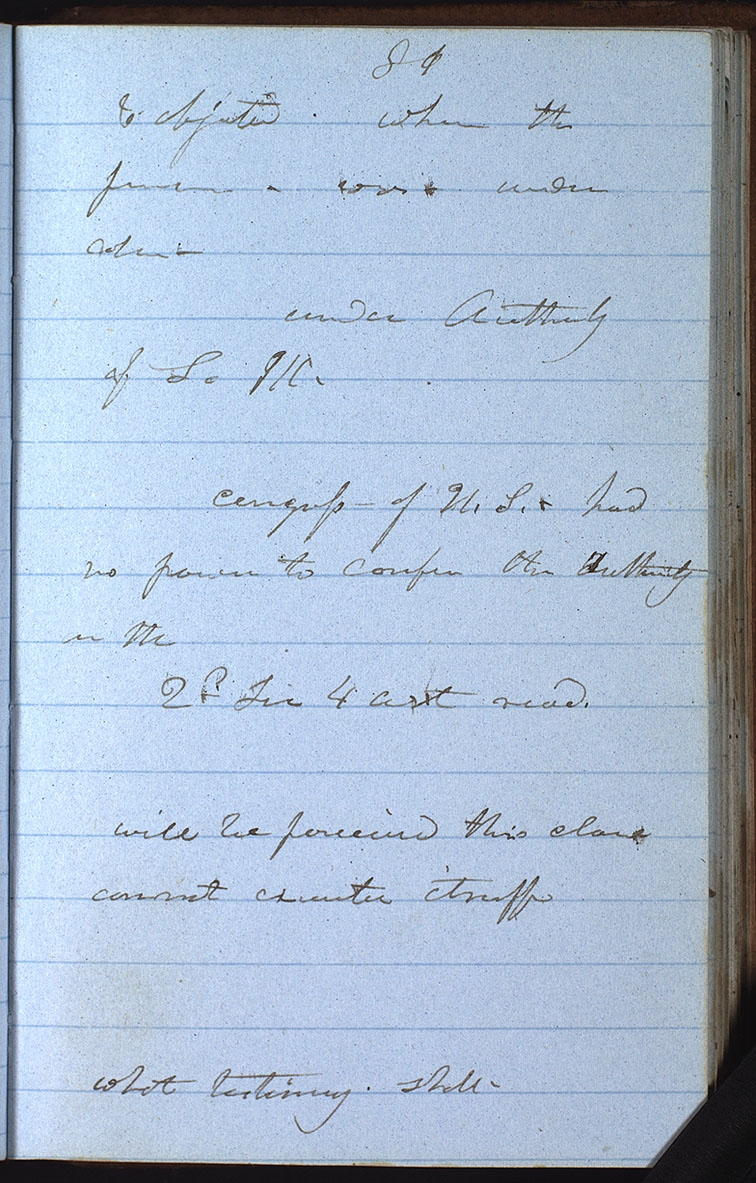 & objected. when the
person - was under
under Authority
of So
congress - of U. S. - had
no power to confer the Authority
in the
2d Sec 4 art read.
will be perceived this clause
cannot execute itself
what testimony. shall -